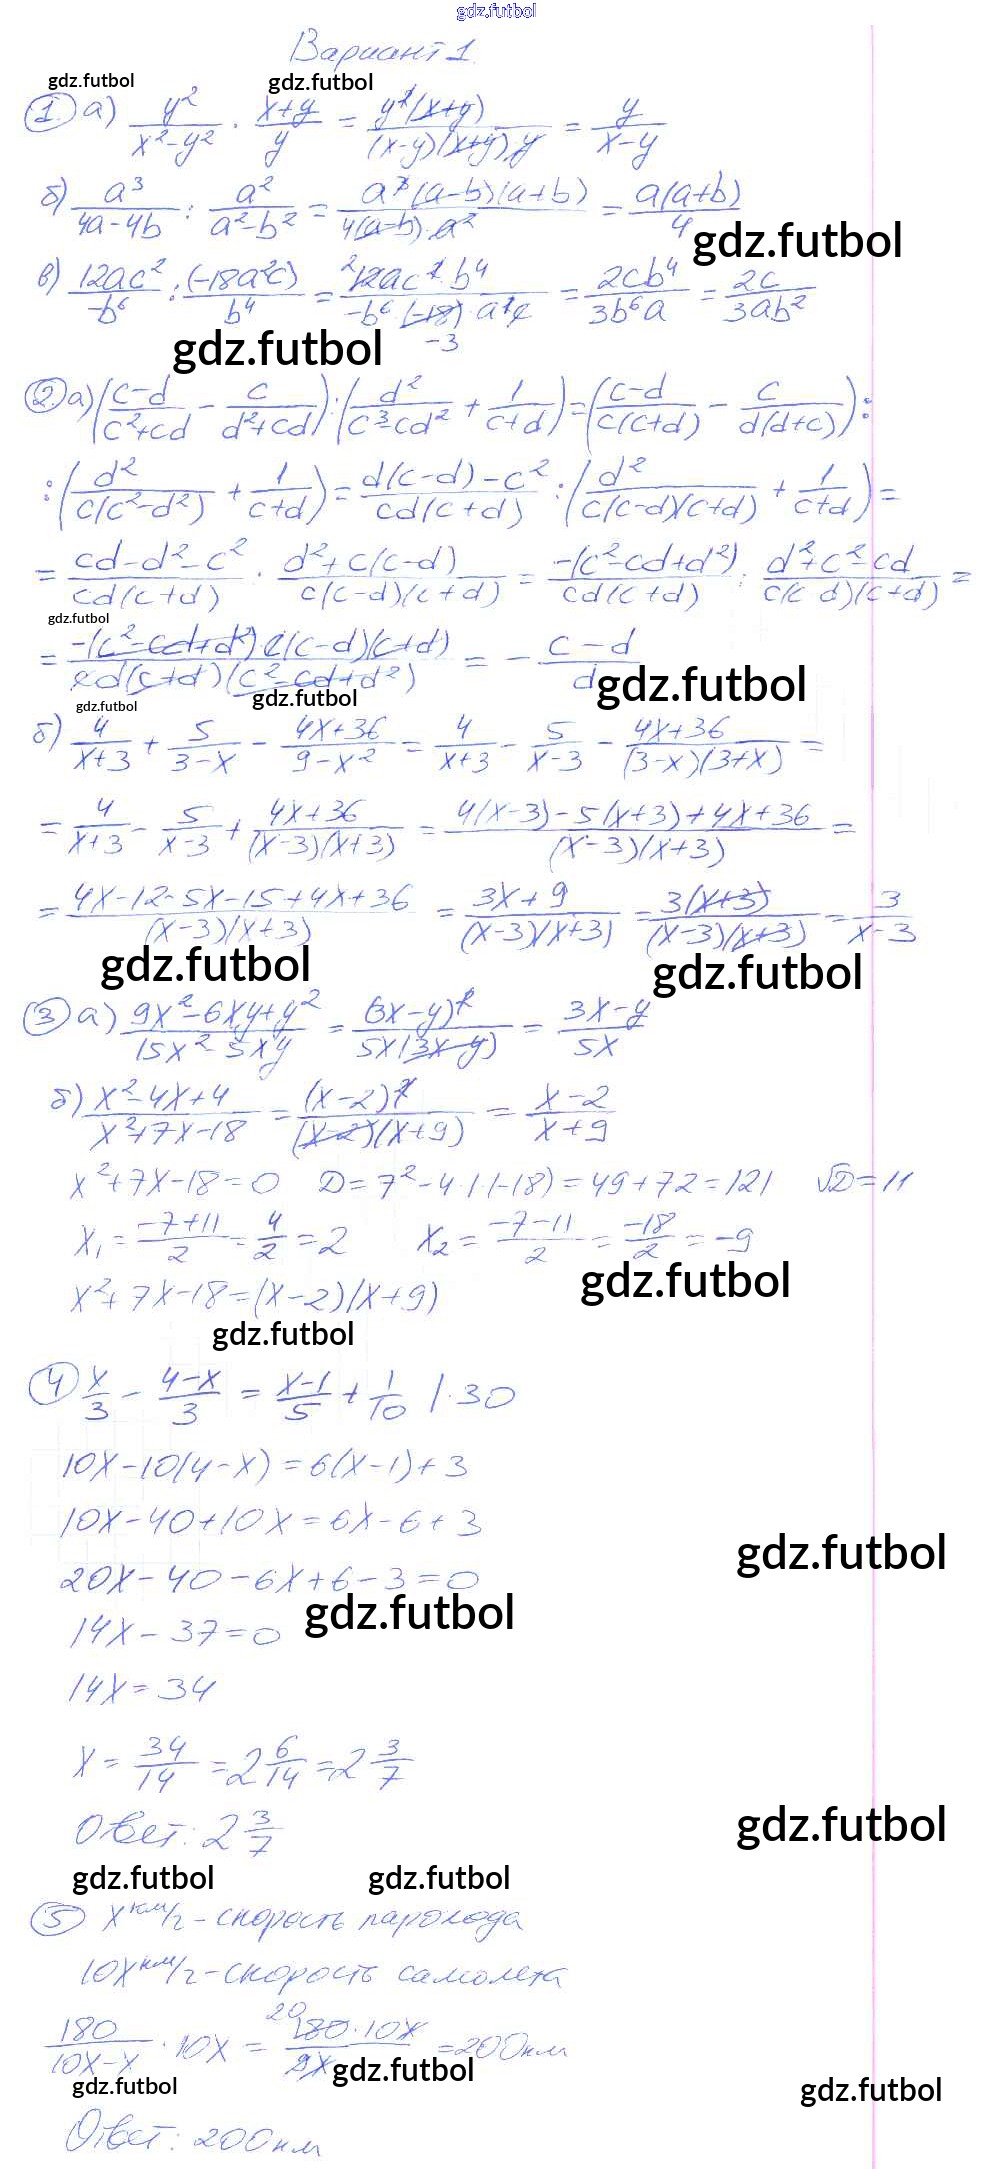 gdz.futbol
Вариант 1.
gdz.futbol gdz.futbol
1. а) y²/(x²-y²) · (x+y)/y = y²(x+y)/((x-y)(x+y)y) = y/(x-y)
б) a³/(4a-4b) : a²/(a²-b²) = a³(a-b)(a+b)/(4(a-b)·a²) = a(a+b)/4
gdz.futbol
в) 12ac²/(-b⁶) : (-18a²c)/b⁴ = 12ac²·b⁴/(-b⁶·(-18)·a²c) = 2cb⁴/(3b⁶a) = 2c/(3ab²)
2 -3
gdz.futbol
2. а) ((c-d)/(c²+cd) - c/(d²+cd)) : (d²/(c³-cd²) + 1/(c+d)) = ((c-d)/(c(c+d)) - c/(d(d+c))) :
: (d²/(c(c²-d²)) + 1/(c+d)) = (d(c-d)-c²)/(cd(c+d)) : (d²/(c(c-d)(c+d)) + 1/(c+d)) =
= (cd-d²-c²)/(cd(c+d)) : (d²+c(c-d))/(c(c-d)(c+d)) = -(c²-cd+d²)/(cd(c+d)) : (d²+c²-cd)/(c(c-d)(c+d)) =
gdz.futbol
= -(c²-cd+d²)·c(c-d)(c+d)/(cd(c+d)(c²-cd+d²)) = - (c-d)/d
gdz.futbol
gdz.futbol
gdz.futbol
б) 4/(x+3) + 5/(3-x) - (4x+36)/(9-x²) = 4/(x+3) - 5/(x-3) - (4x+36)/((3-x)(3+x)) =
= 4/(x+3) - 5/(x-3) + (4x+36)/((x-3)(x+3)) = (4(x-3)-5(x+3)+4x+36)/((x-3)(x+3)) =
= (4x-12-5x-15+4x+36)/((x-3)(x+3)) = (3x+9)/((x-3)(x+3)) = 3(x+3)/((x-3)(x+3)) = 3/(x-3)
gdz.futbol gdz.futbol
3 а) (9x²-6xy+y²)/(15x²-5xy) = (3x-y)²/(5x(3x-y)) = (3x-y)/(5x)
б) (x²-4x+4)/(x²+7x-18) = (x-2)²/((x-2)(x+9)) = (x-2)/(x+9)
x²+7x-18=0 D=7²-4·1·(-18)=49+72=121 √D=11
x₁=(-7+11)/2=4/2=2 x₂=(-7-11)/2=-18/2=-9
gdz.futbol
x²+7x-18=(x-2)(x+9)
gdz.futbol
4 x/3 - (4-x)/3 = (x-1)/5 + 1/10 |·30
10x-10(4-x)=6(x-1)+3
10x-40+10x=6x-6+3
gdz.futbol
20x-40-6x+6-3=0
gdz.futbol
14x-37=0
14x=34
x=34/14=2 6/14=2 3/7
Ответ: 2 3/7
gdz.futbol
gdz.futbol gdz.futbol
5 x км/ч - скорость парохода
10x км/ч - скорость самолета
180/(10x-x) · 10x = 180·10x/(9x) = 200 км
20
gdz.futbol
gdz.futbol gdz.futbol
Ответ: 200 км